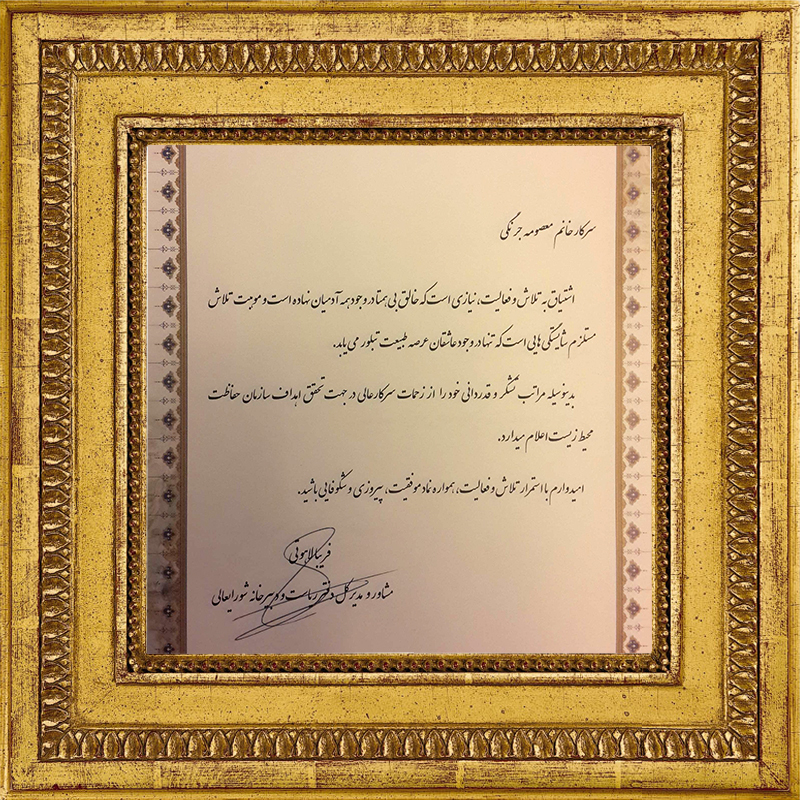 سرکار خانم معصومه جرنگی
اشتیاق به تلاش و فعالیت، نیازی است که خالق بی همتا در وجود همه آدمیان نهاده است و موهبت تلاش
مستلزم شایستگی هایی است که تنها در وجود عاشقان عرصه طبیعت تبلور می یابد.
بدینوسیله مراتب تشکر و قدردانی خود را از زحمات سرکارعالی در جهت تحقق اهداف سازمان حفاظت
محیط زیست اعلام میدارد.
امیدوارم با استمرار تلاش و فعالیت، همواره نماد موفقیت، پیروزی و شکوفایی باشید.
فریبا لاهوتی
مشاور و مدیرکل دفتر ریاست و دبیرخانه شورایعالی